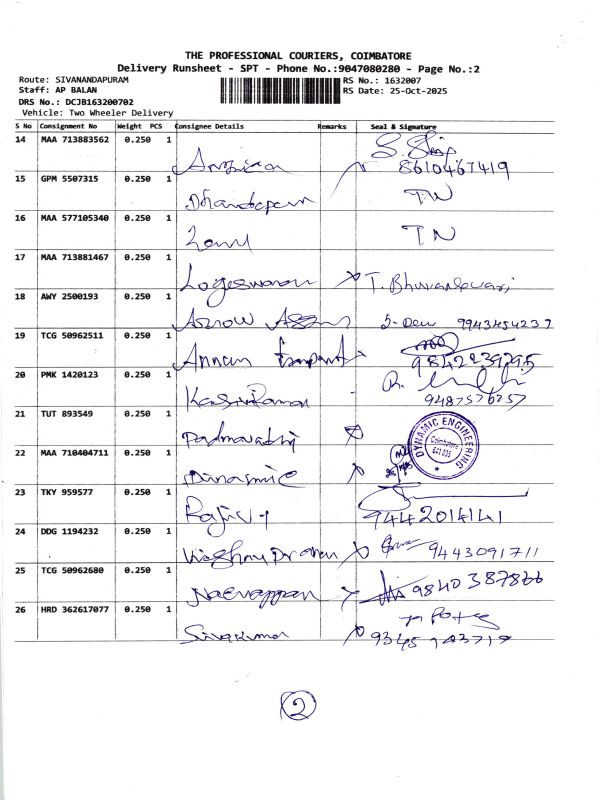 THE PROFESSIONAL COURIERS, COIMBATORE
Delivery Runsheet - SPT - Phone No.:9047080280 - Page No.:2
Route: SIVANANDAPURAM RS No.: 1632007
Staff: AP BALAN RS Date: 25-Oct-2025
DRS No.: DCJB163200702
Vehicle: Two Wheeler Delivery
S No Consignment No Weight PCS Consignee Details Remarks Seal & Signature
14 MAA 713883562 0.250 1 8610467419
15 GPM 5507315 0.250 1
16 MAA 577105340 0.250 1
17 MAA 713881467 0.250 1 Logeswaran T. Bhuvaneswari
18 AWY 2500193 0.250 1 Arrow 9943454237
19 TCG 50962511 0.250 1 Annan 9842239295
20 PMK 1420123 0.250 1 Kasiviraman 9487576257
21 TUT 893549 0.250 1 Padmavathi
22 MAA 710404711 0.250 1 Dinamic DYNAMIC ENGINEERING Coimbatore
23 TKY 959577 0.250 1 Rajiv 9442014141
24 DDG 1194232 0.250 1 9443091711
25 TCG 50962680 0.250 1 9840387866
26 HRD 362617077 0.250 1 Sivakumar
2